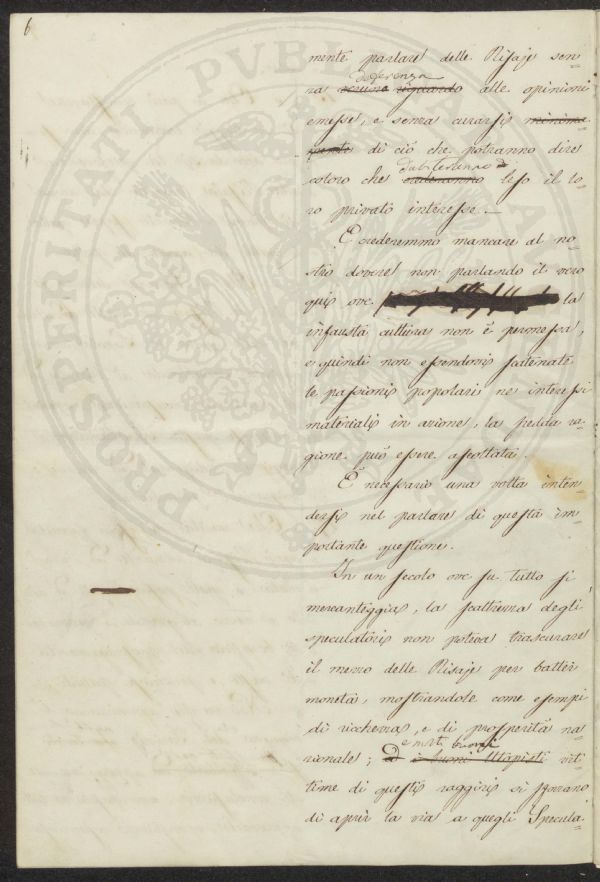 6
PROSPERITATI PVBLICAE
mente parlare delle Risaje sen=
za deferenza alle opinioni
emesse, e senza curarsi
di ciò che potranno dire
coloro che dubiteranno leso il lo=
ro privato interesse.—
E crederemmo mancare al no=
stro dovere non parlando il vero
qui ove la
infausta cultura non è permessa,
e quindi non essendovi scatenate
le passioni popolari ne interessi
materiali in azione, la fredda ra=
gione può essere ascoltata.
È necessario una volta inten=
dersi nel parlare di questa im=
portante questione.
In un secolo ove su tutto si
mercanteggia, la scaltrezza degli
speculatori non poteva trascurare
il mezzo delle Risaje per batter
moneta, mostrandole come esempi
di ricchezza, e di prosperità na=
zionale; e molti buoni i buoni Utopisti vit=
time di questi raggiri si sforzano
di aprir la via a quegli Specula=